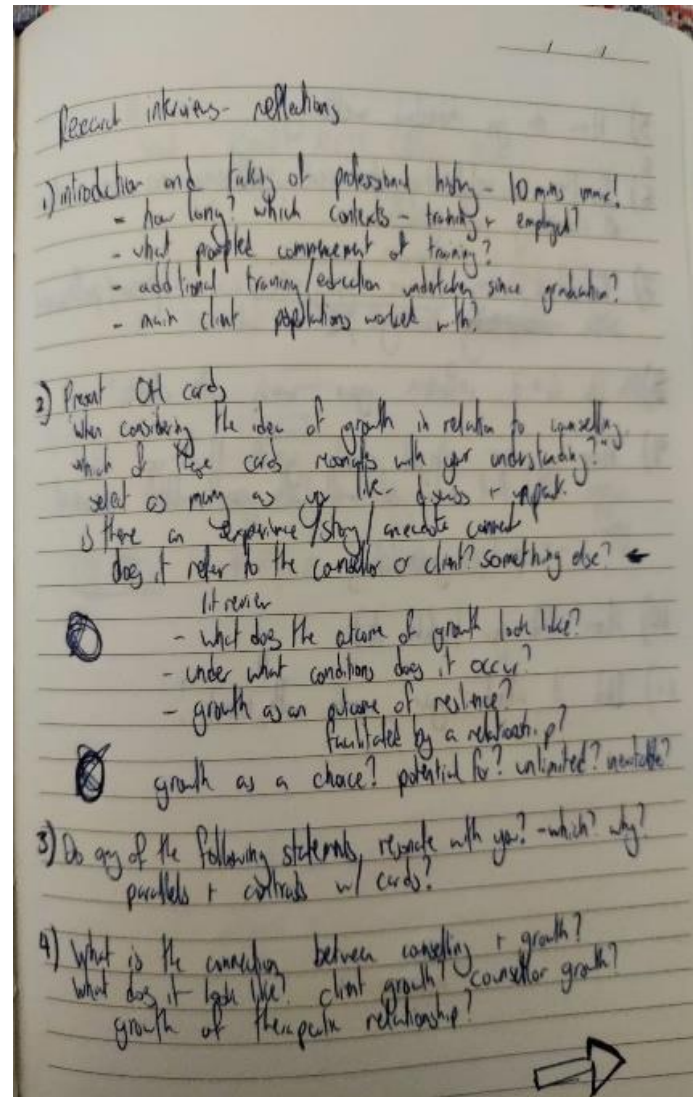 Research interviews - reflections
1) introduction and taking of professional history - 10 mins max!
- how long? which contexts - training + employed?
- what prompted commencement of training?
- additional training/education undertaken since graduation?
- main client populations worked with?
2) Present OH cards
when considering the idea of growth in relation to counselling,
which of these cards resonates with your understanding?"
select as many as you like - discuss + unpack.
is there an experience/story/anecdote connect
does it refer to the counsellor or client? something else? ←
lit review
- what does the outcome of growth look like?
- under what conditions does it occur?
- growth as an outcome of resilience?
facilitated by a relationship?
growth as a choice? potential for? unlimited? inevitable?
3) Do any of the following statements resonate with you? - which? why?
parallels + contrasts w/ cards?
4) What is the connection between counselling + growth?
What does it look like? client growth? counsellor growth?
growth of therapeutic relationship?